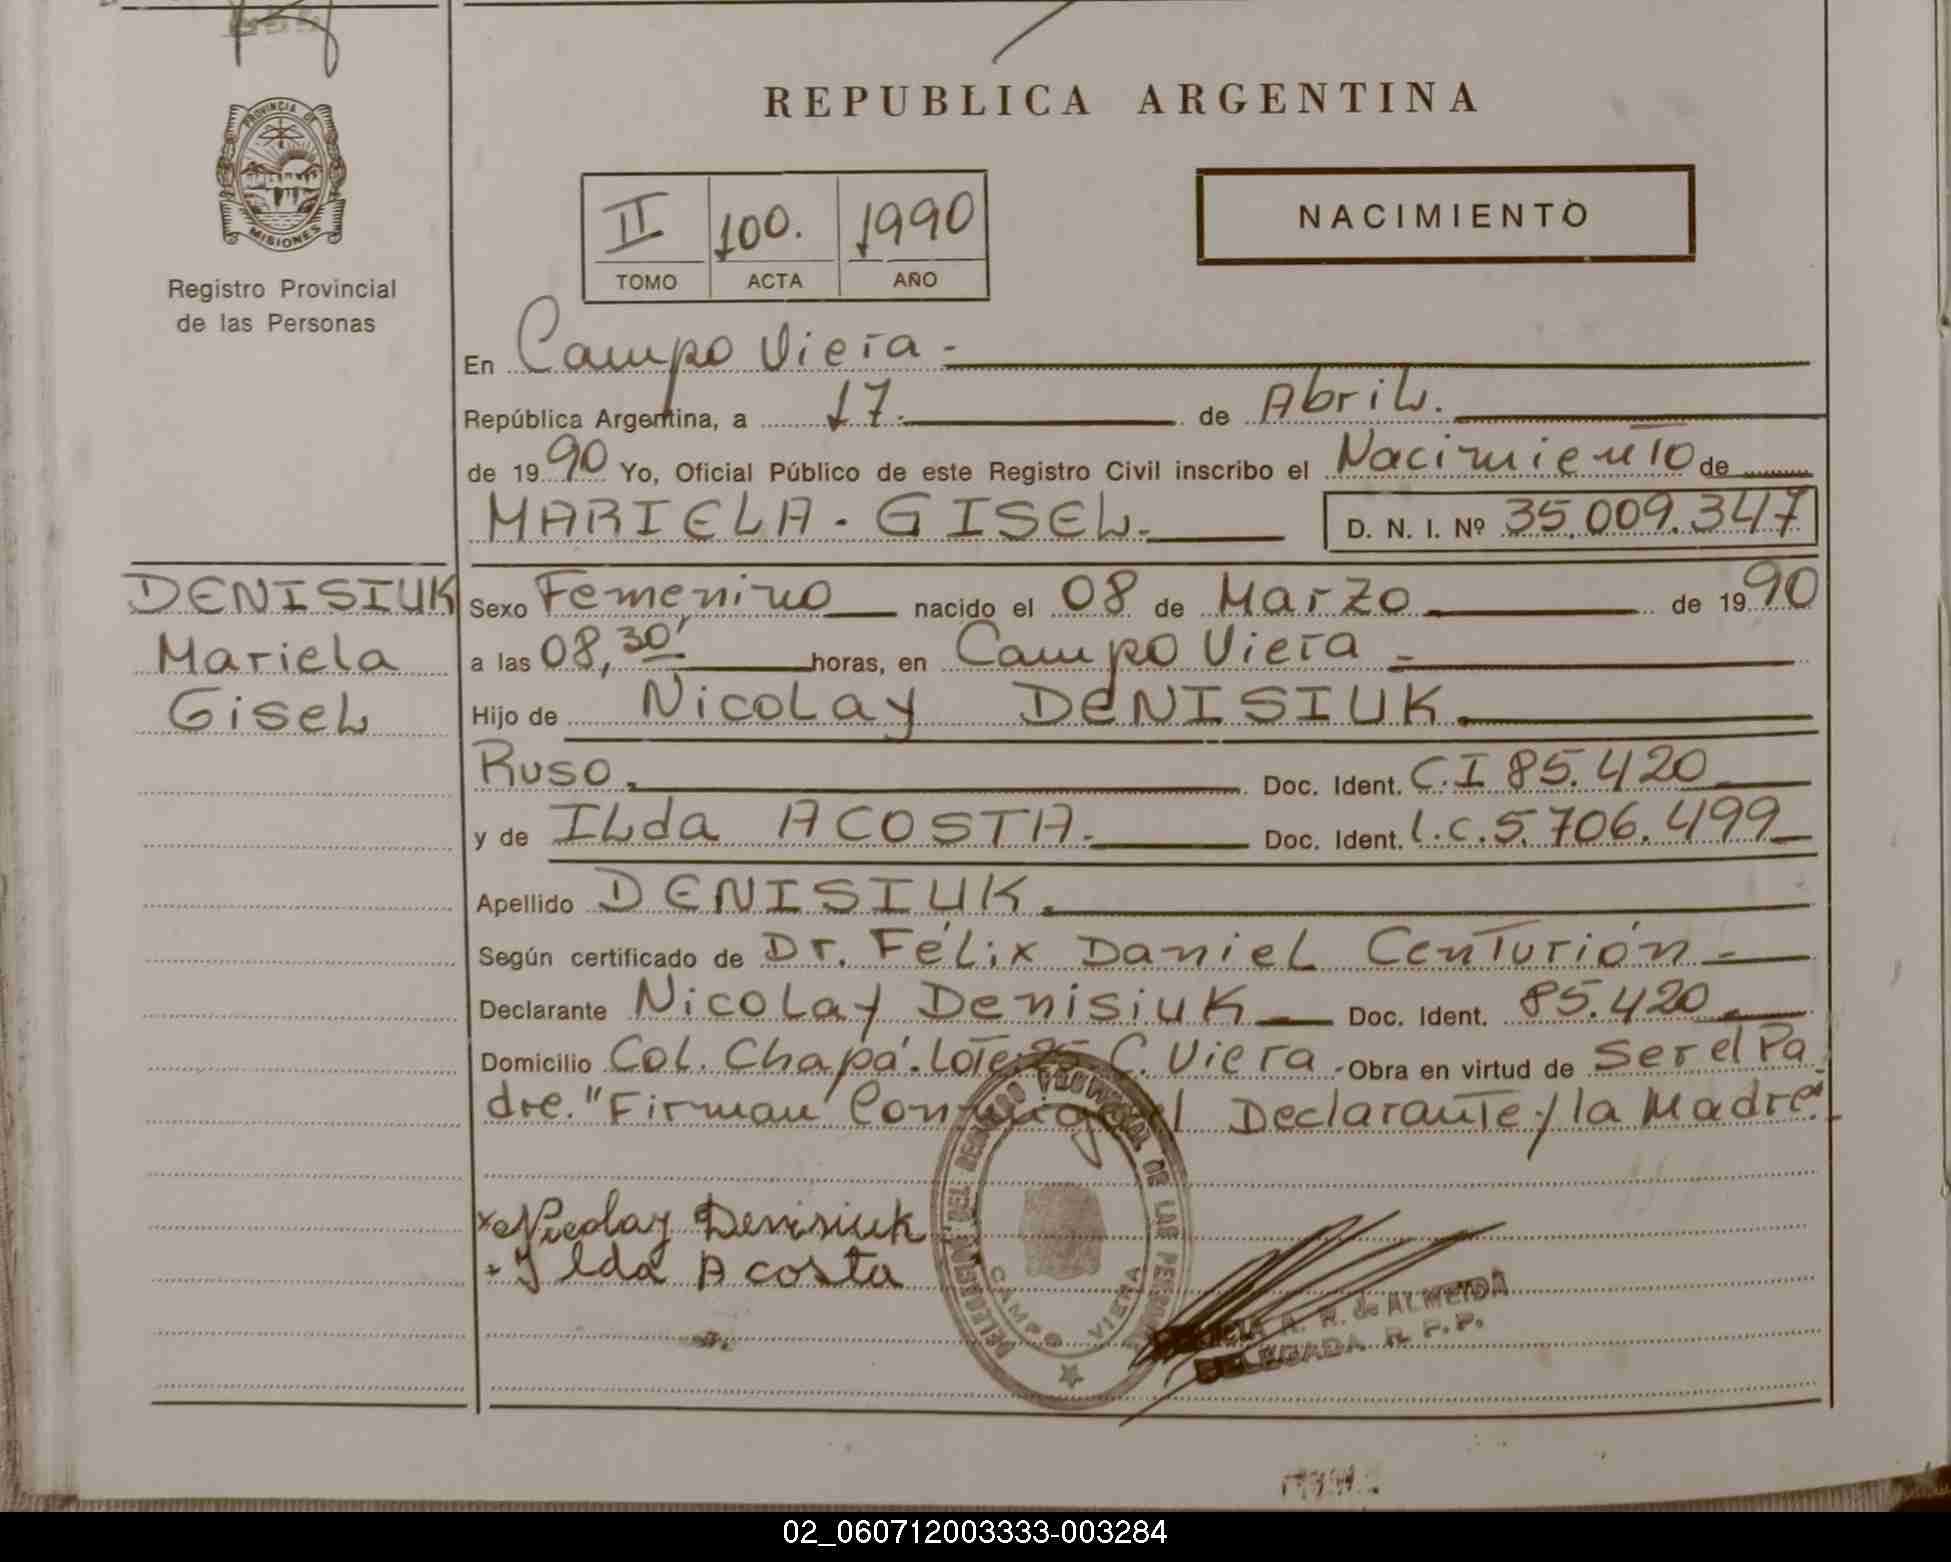 REPUBLICA ARGENTINA
PROVINCIA DE
MISIONES
Registro Provincial
de las Personas
II 100. 1990
TOMO ACTA AÑO
NACIMIENTO
En Campo Viera -
República Argentina, a 17. de Abril.
de 1990 Yo, Oficial Público de este Registro Civil inscribo el Nacimiento de
MARIELA - GISEL. D. N. I. Nº 35.009.347
DENISIUK
Mariela
Gisel
Sexo Femenino nacido el 08 de Marzo de 1990
a las 08,30' horas, en Campo Viera -
Hijo de Nicolay DENISIUK.
Ruso. Doc. Ident. C.I 85.420
y de ILda ACOSTA. Doc. Ident. L.C. 5.706.499
Apellido DENISIUK.
Según certificado de Dr. Félix Daniel Centurión -
Declarante Nicolay Denisiuk Doc. Ident. 85.420
Domicilio Col. Chapá. Lote: C. Viera - Obra en virtud de Ser el Pa
dre. "Firman Conmigo el Declarante y la Madre"
Nicolay Denisiuk
Ilda Acosta
PROVINCIAL DE LAS
CAMPO VIERA
A. R. de ALMEIDA
DELEGADA R. P. P.
02_060712003333-003284